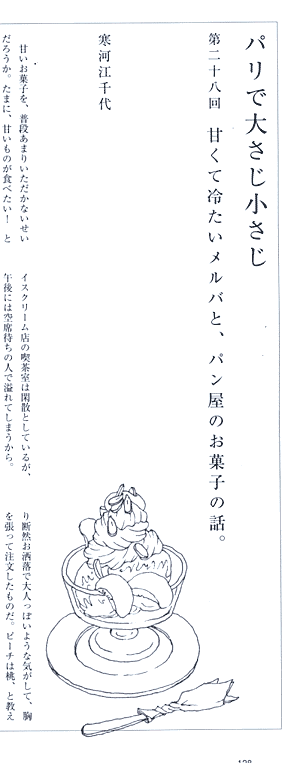 パリで大さじ小さじ
第二十八回　甘くて冷たいメルバと、パン屋のお菓子の話。
寒河江千代
甘いお菓子を、普段あまりいただかないせい
だろうか。たまに、甘いものが食べたい！　と
イスクリーム店の喫茶室は閑散としているが、
午後には空席待ちの人で溢れてしまうから。
り断然お洒落で大人っぽいような気がして、胸
を張って注文したものだ。ピーチは桃、と教え